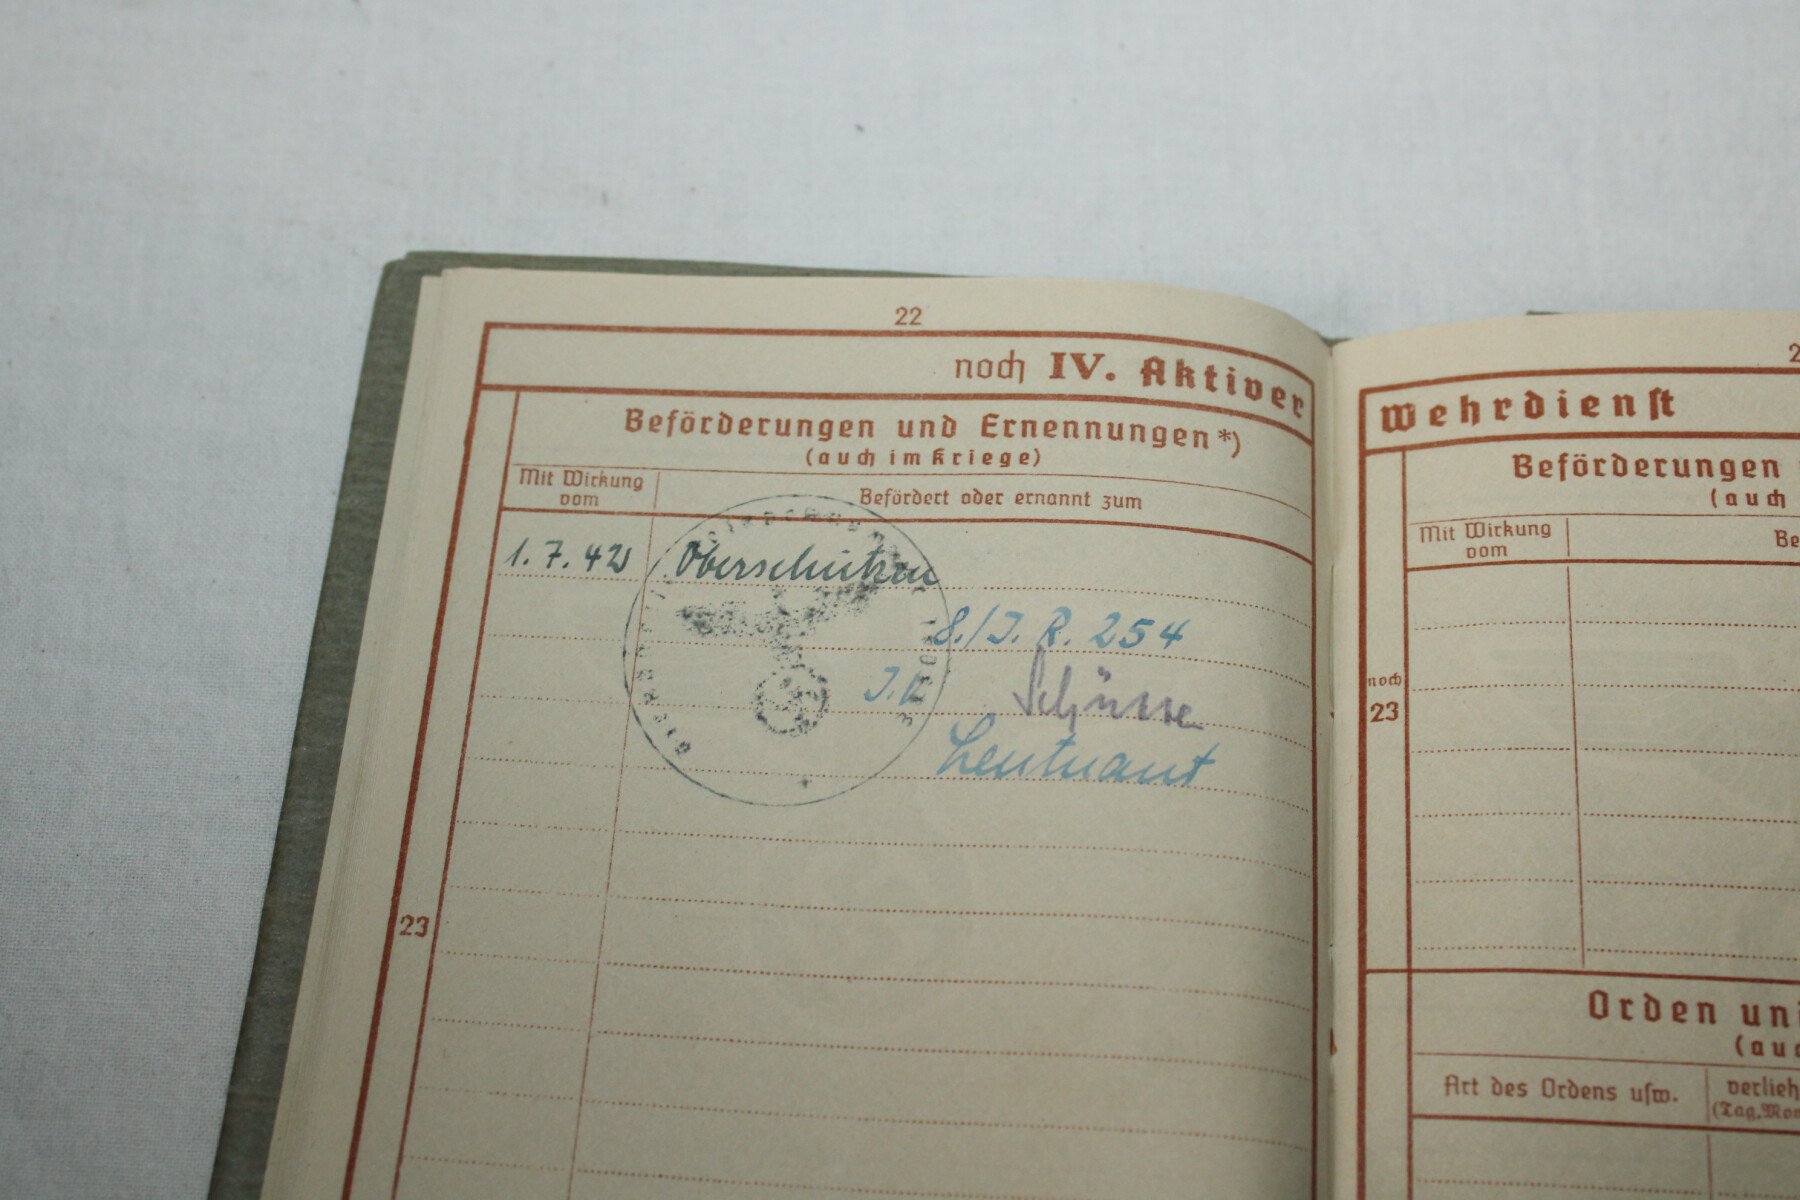 22
noch IV. Aktiver
Beförderungen und Ernennungen*)
(auch im Kriege)
Mit Wirkung
vom
Befördert oder ernannt zum
1.7.42
Oberschützen
8./I.R. 254
Leutnant
23
2
Wehrdienst
Beförderungen
(auch
Mit Wirkung
vom
Be
noch
23
Orden un
(au
Art des Ordens usw.
verlieh
(Tag, Mon